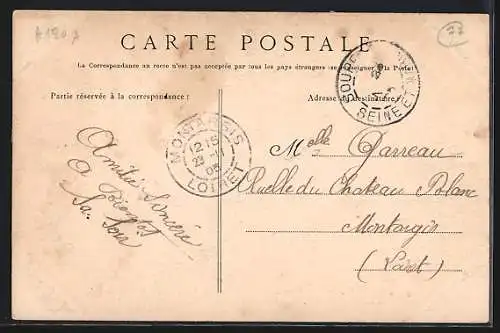 CARTE POSTALE
La Correspondance au recto n'est pas acceptée par tous les pays étrangers (se renseigner à la Poste)
Partie réservée à la correspondance :
Adresse du destinataire :
77
MONTARGIS
12 15
LOIRET
SEINE ET
Amitié Sincère
a Bientot
Melle Garreau
Ruelle du Chateau Blanc
Montargis
(Loiret)